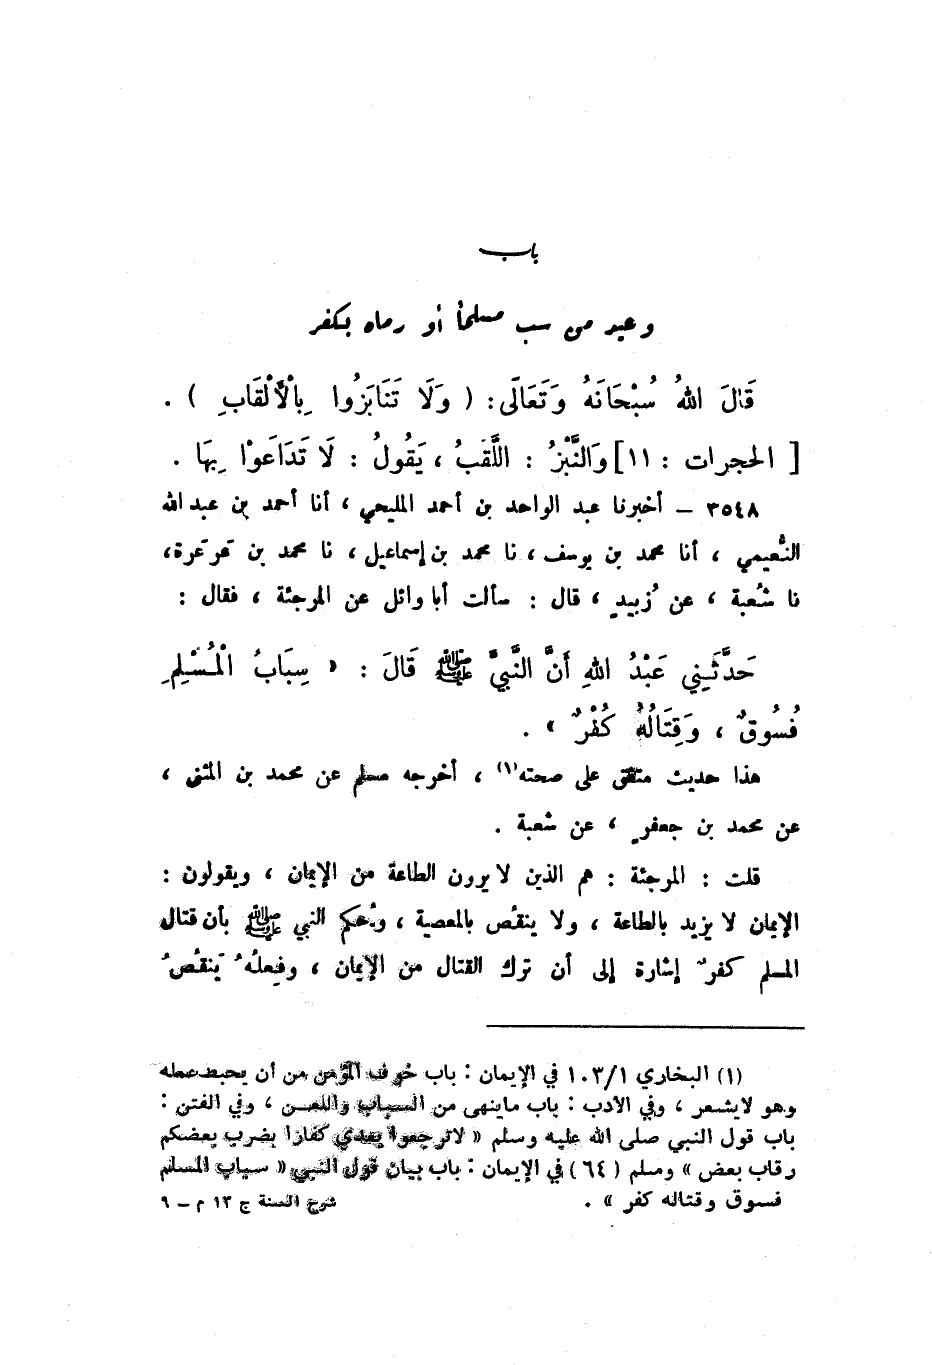 باب
وعيد من سب مسلماً أو رماه بكفر
قَالَ اللهُ سُبْحَانَهُ وَتَعَالَى: ( وَلَا تَنَابَزُوا بِالْأَلْقَابِ ) .
[ الحجرات : ١١] وَالنَّبْزُ : اللَّقَبُ ، يَقُولُ : لَا تَدَاعَوْا بِهَا .
٣٥٤٨ – أخبرنا عبد الواحد بن أحمد المليحي ، أنا أحمد بن عبد الله
النُّعيمي ، أنا محمد بن يوسف ، نا محمد بن إسماعيل ، نا محمد بن عَرعَرة ،
نا شُعبة ، عن زُبيدٍ ، قال : سألت أبا وائل عن المرجئة ، فقال :
حَدَّثَنِي عَبْدُ اللهِ أَنَّ النَّبِيَّ ﷺ قَالَ : « سِبَابُ الْمُسْلِمِ
فُسُوقٌ ، وَقِتَالُهُ كُفْرٌ » .
هذا حديث متفق على صحته(١) ، أخرجه مسلم عن محمد بن المثنى ،
عن محمد بن جعفرٍ ، عن شعبة .
قلت : المرجئة : هم الذين لا يرون الطاعة من الإيمان ، ويقولون :
الإيمان لا يزيد بالطاعة ، ولا ينقُص بالمعصية ، وحُكم النبي ﷺ بأن قتال
المسلم كفرٌ إشارة إلى أن ترك القتال من الإيمان ، وفِعلُهُ يَنقُصُ
(١) البخاري ١٠٣/١ في الإيمان : باب خوف المؤمن من أن يحبط عمله
وهو لايشعر ، وفي الأدب : باب ماينهى من السباب واللعن ، وفي الفتن :
باب قول النبي صلى الله عليه وسلم « لاترجعوا بعدي كفارا يضرب بعضكم
رقاب بعض » ومسلم ( ٦٤ ) في الإيمان : باب بيان قول النبي « سباب المسلم
فسوق وقتاله كفر » .
شرح السنة ج ١٣ م – ٩